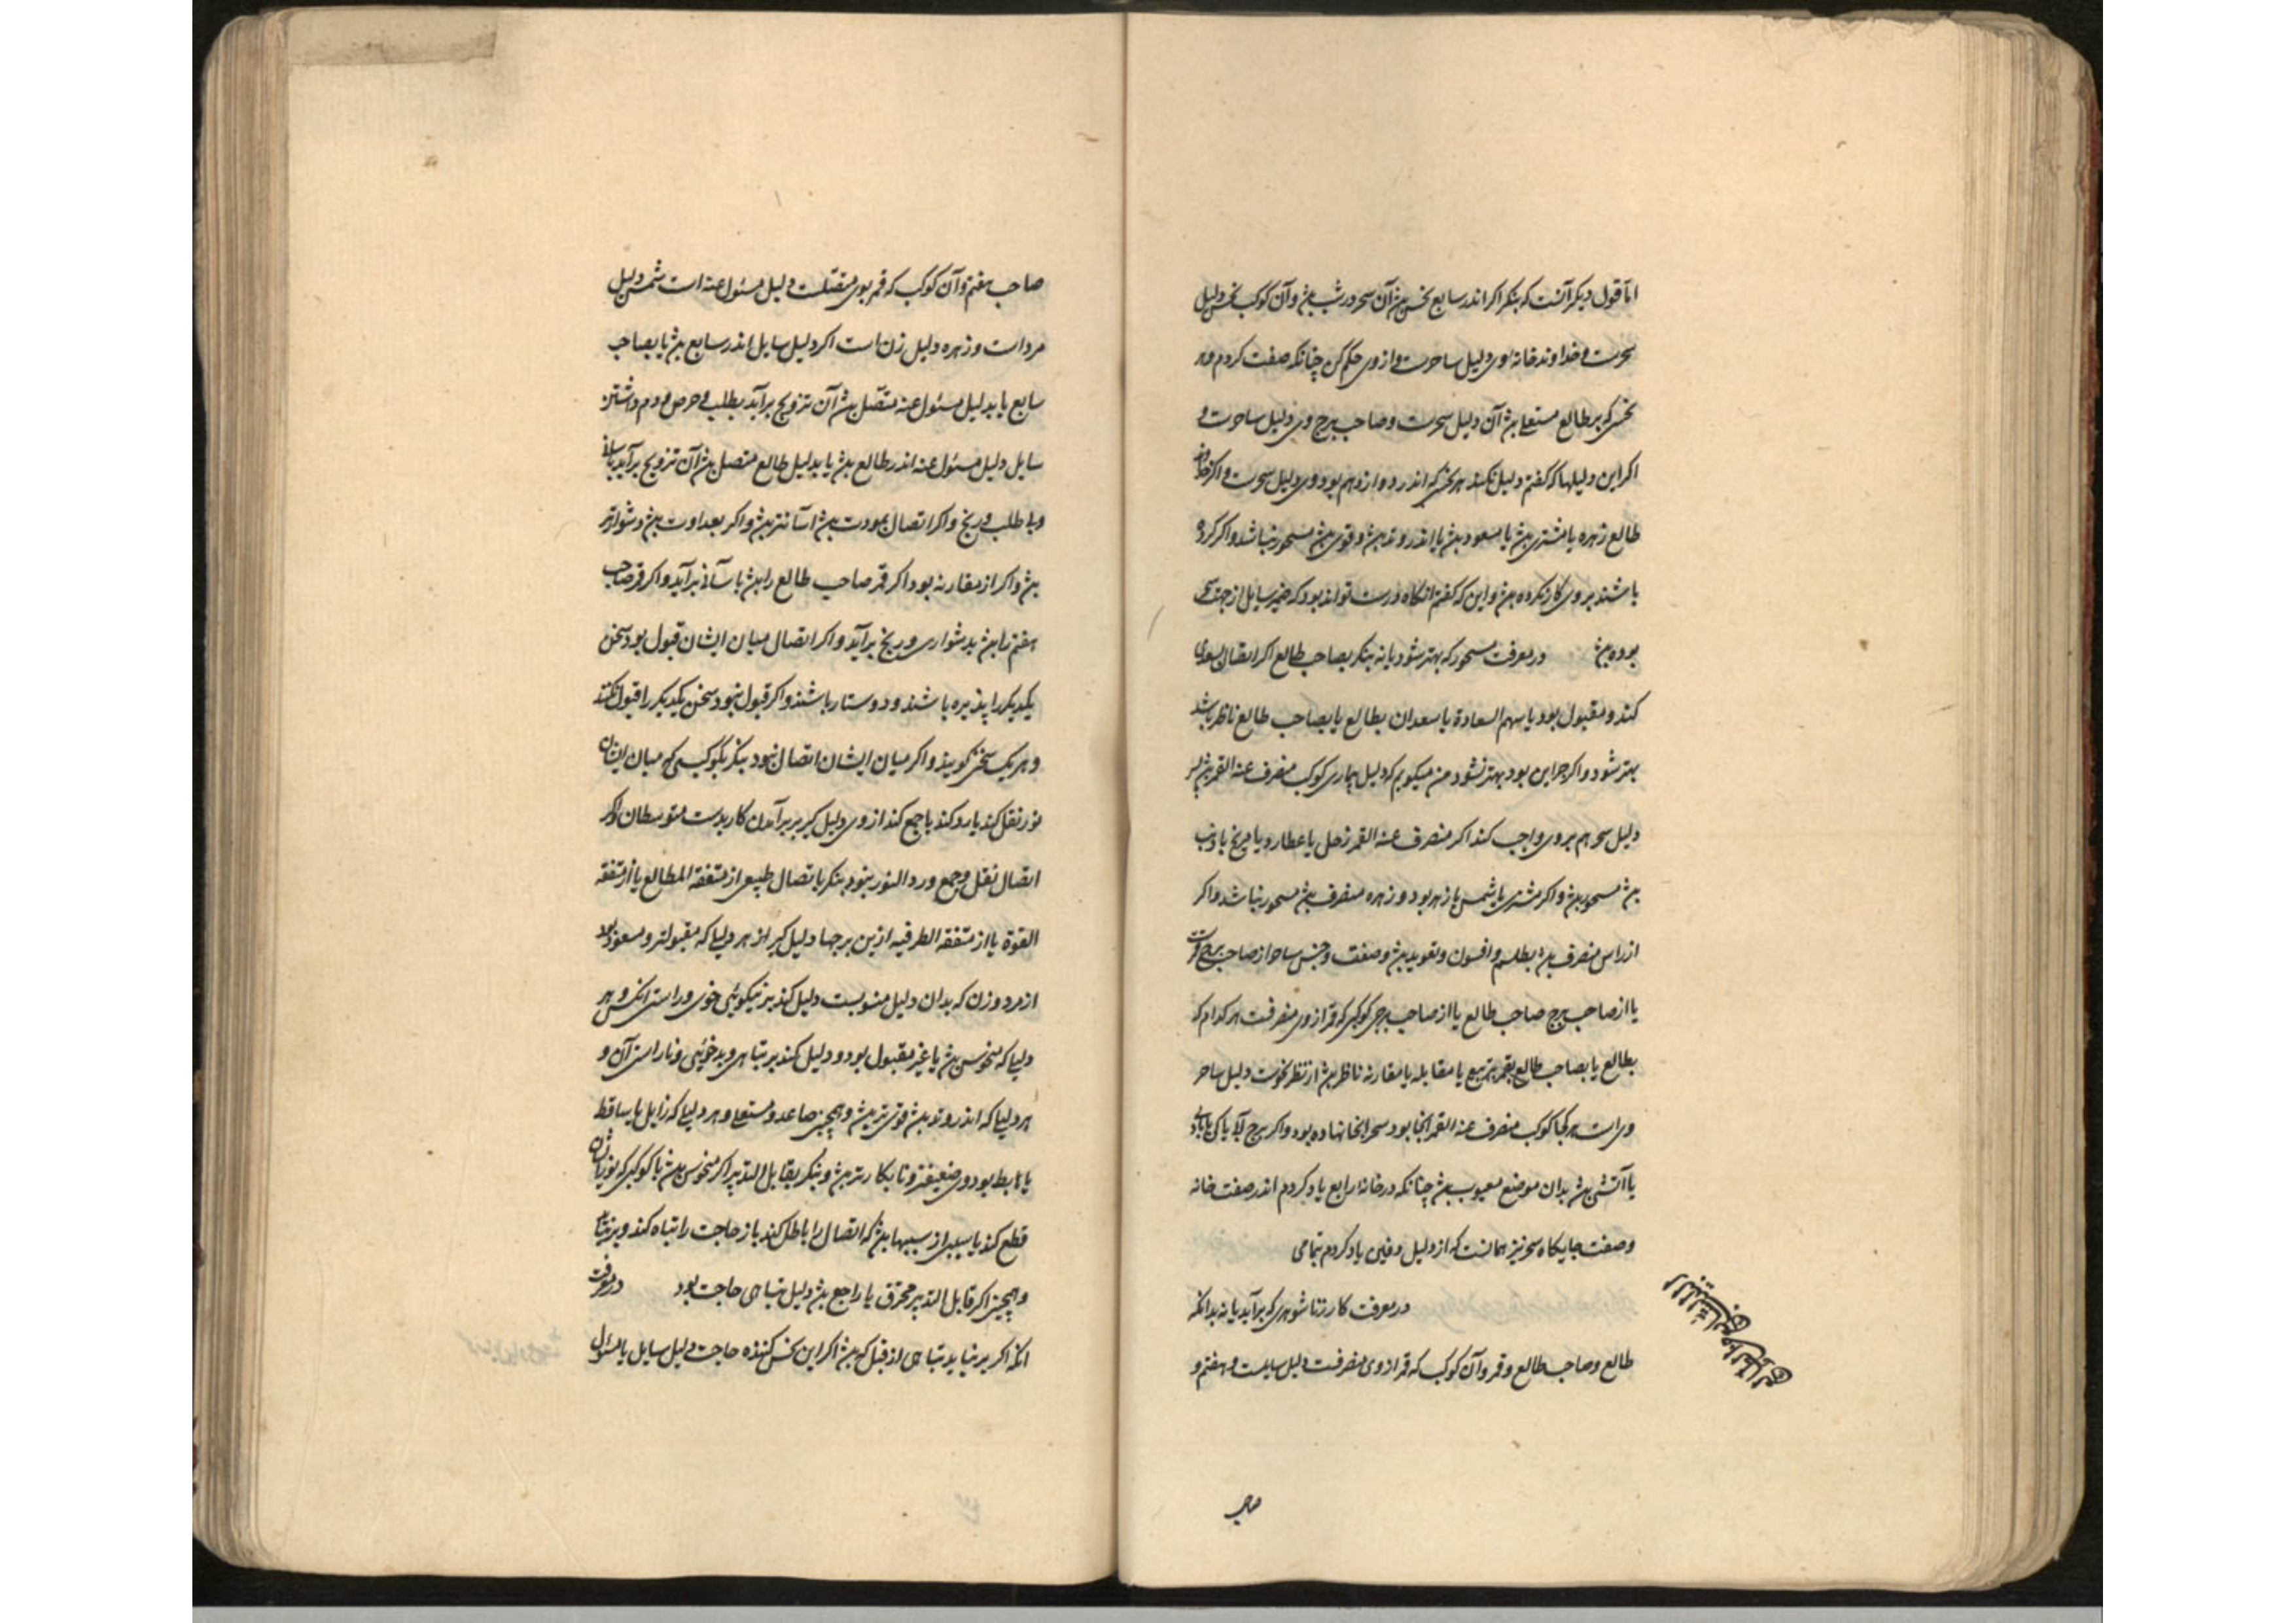 اما قول دیگر آنست که بنگر اگر اندر سابع نحس بود آن سحر درست بود و آن کوکب نحس دلیل
سحرست و خداوند خانه وی دلیل ساحرست و از وی حکم کن چنانکه صفت کردم و هر
نحس که بر طالع مستعلی بود آن دلیل سحرست و صاحب برج وی دلیل ساحرست و
اگر این دلیلها که گفتم دلیل نکنند هر نحس که اندر دوازدهم بود وی دلیل سحرست و اگر
طالع زهره یا مشتری بود یا مسعود بود یا اندر وتد بود و قوی بود مسحور نباشد و اگر کرده
باشند بر وی کار نکرده بود و این که گفتم آنگاه درست تواند بود که ضمیر سایل از جهت سحر
بوده بود در معرفت مسحور که بهتر شود یا نه بنگر بصاحب طالع اگر اتصال بسعدی
کند و مقبول بود یا سهم السعادة یا سعدان بطالع یا بصاحب طالع ناظر باشد
بهتر شود و اگر جز این بود بهتر نشود من میگویم که دلیل بیماری کوکب منصرف عنه القمر
دلیل سحر هم بر وی واجب کند اگر منصرف عنه القمر زحل یا عطارد یا مریخ یا ذنب
بود مسحور بود و اگر مشتری یا شمس یا زهره بود و زهره منصرف بود مسحور نباشد و اگر
از راس منصرف بود بطلسم و افسون و تعویذ بود و صفت و جنس ساحر از صاحب برج
یا از صاحب برج صاحب طالع یا از صاحب برجی کوکبی که قمر از وی منصرفست هر کدام که
بطالع یا بصاحب طالع بقمر بتربیع یا مقابله یا مقارنه ناظر بود از نظر نحوست دلیل ساحر
وی است هر کجا کوکب منصرف عنه القمر آنجا بود سحر آنجا نهاده بود و اگر برج آبی یا خاکی یا بادی
یا آتشی بود بدان موضع معیوب بود چنانکه در خانه رابع یاد کردم اندر صفت خانه
و صفت جایگاه سحر نیز همانست که از دلیل دفین یاد کردم بتمامی
در معرفت کار زناشوهری که برآید یا نه بدانکه
طالع و صاحب طالع و قمر و آن کوکب که قمر از وی منصرفست دلیل سایلست و هفتم و
صاحب
صاحب هفتم و آن کوکب که قمر بوی متصلست دلیل مسئول عنه است شمس دلیل
مردانست و زهره دلیل زنان است اگر دلیل سایل اندر سابع بود یا بصاحب
سابع یا بدلیل مسئول عنه متصل بود آن تزویج برآید بطلب و حرص مردم داشتن
سایل دلیل مسئول عنه اندر طالع بود یا بدلیل طالع متصل بود آن تزویج برآید بآسانی
و بی طلب و رنج و اگر اتصال بمودت بود آسانتر بود و اگر بعداوت بود دشوارتر
بود و اگر از مقارنه بود اگر قمر صاحب طالع را بود بآسانی برآید و اگر قمر صاحب
هفتم را بود بدشواری و رنج برآید و اگر اتصال میان ایشان قبول بود سخن
یکدیگر را پذیره باشند و دوستار باشند و اگر قبول نبود سخن یکدیگر را قبول نکنند
و هر یک سخن گویند و اگر میان ایشان اتصال نبود بنگر بکوکبی که میان ایشان
نور نقل کند یا رد کند یا جمع کند از وی دلیل گیر بر برآمدن کار بدست متوسطان و اگر
اتصال نقل و جمع و رد النور نبود بنگر باتصال طبیعی از متفقة المطالع یا از متفقه
القوة یا از متفقة الطرفیه ازین برجها دلیل گیر از هر دلیلی که مقبولتر و مسعودتر بود
از مرد و زن که بدان دلیل منسوبست دلیل کند بر نیکویی خوی و راستی آنکس و هر
دلیلی که منحوس بود یا غیر مقبول بود و دلیل کند بر تباهی و بدخوئی و ناراستی آن و
هر دلیلی که اندر وتد بود قوی تر بود و همچنین صاعد و مستعلی و هر دلیلی که زایل یا ساقط
یا هابط بود وی ضعیفتر و نابکارتر بود و بنگر بقابل التدبیر اگر منحوس بود یا کوکبی که نور ایشان
قطع کند یا سببی از سببها بود که اتصال را باطل کند باز حاجت را تباه کند و برنیاید
و همچنین اگر قابل التدبیر محترق یا راجع بود دلیل تباهی حاجت بود در معرفت
آنکه اگر برنیاید تباهی از قبل که بود اگر این نحس کننده حاجت دلیل سایل یا مسئول